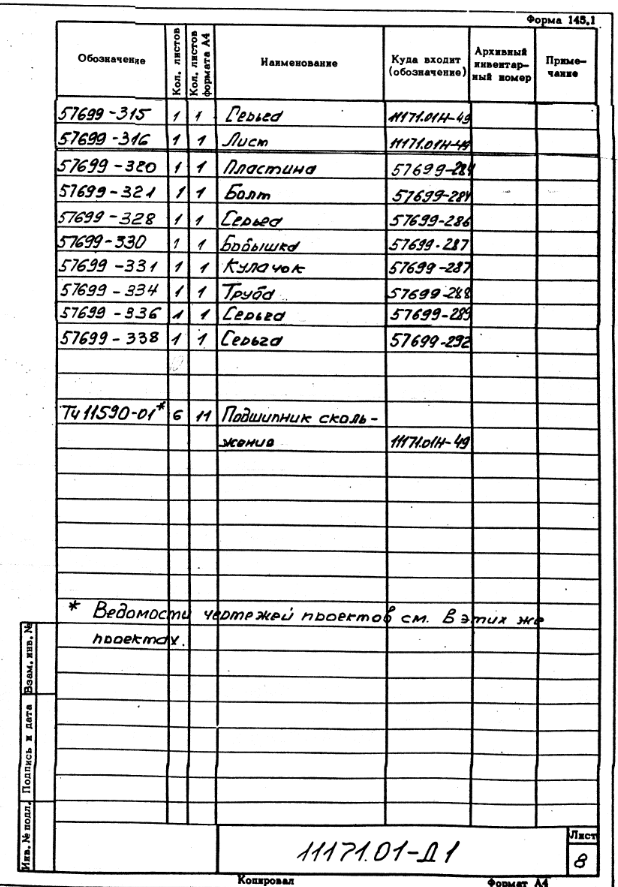 Форма 145.1
Обозначение Кол. листов Кол. листов формата А4 Наименование Куда входит (обозначение) Архивный инвентарный номер Примечание
57699-315 1 1 Серьга 11171.01Н-49
57699-316 1 1 Лист 11171.01Н-49
57699-320 1 1 Пластина 57699-284
57699-321 1 1 Болт 57699-284
57699-328 1 1 Серьга 57699-286
57699-330 1 1 Бобышка 57699-287
57699-331 1 1 Кулачок 57699-287
57699-334 1 1 Труба 57699-288
57699-336 1 1 Серьга 57699-289
57699-338 1 1 Серьга 57699-292
Ти11590-01* 6 11 Подшипник сколь-
жения 11171.01Н-49
* Ведомости чертежей проектов см. в этих же
проектах.
Инв. № подл. Подпись и дата Взам. инв. №
11171.01-Д1
Лист
8
Копировал Формат А4